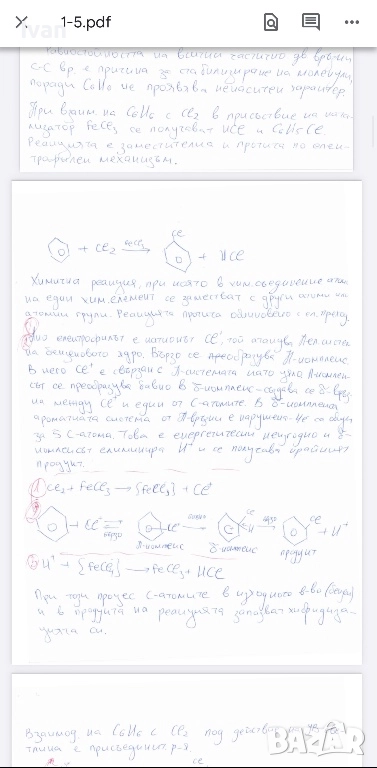 1-5.pdf
ivan
равностойността на всички частично дв. връзки
С-С вр. е причина за стабилизиране на молекули,
поради C6H6 не проявява ненаситен характер.
При взаим. на C6H6 с Cl2 в присъствие на ката-
лизатор FeCl3 се получават HCl и C6H5Cl.
Реакцията е заместителна и протича по елек-
трофилен механизъм.
+ Cl2 FeCl3 → Cl + HCl
Химична реакция, при която в хим. съединение атом
на един хим. елемент се заместват с други атоми или
атомни групи. Реакцията протича
електрофилът е Cl+, той атакува П-ел.
на бензеновото ядро. Бързо се преобразува П-комплекс.
В него Cl+ е свързан с П-системата като цяло. П-комплек-
сът се преобразува бавно в δ-комплекс - създава се δ-връз-
ка между Cl+ и един от С-атомите. В δ-комплекса
ароматната система от П-връзки е нарушена.
за 5 С-атома. Това е енергетически неизгодно и δ-
комплексът елиминира H+ и се получава крайният
продукт.
1) Cl2 + FeCl3 → [FeCl4] + Cl+
+ Cl+ бързо П-комплекс бавно δ-комплекс бързо Cl + H+
продукт
3) H+ + [FeCl4] → FeCl3 + HCl
При този процес С-атомите в изходното в-во (бензен)
и в продукта на реакцията запазват хибридиза-
цията си.
Взаимод. на C6H6 с Cl2 под действие на УВ свет-
лина е присъединит. р-я
Cl
BAZAR